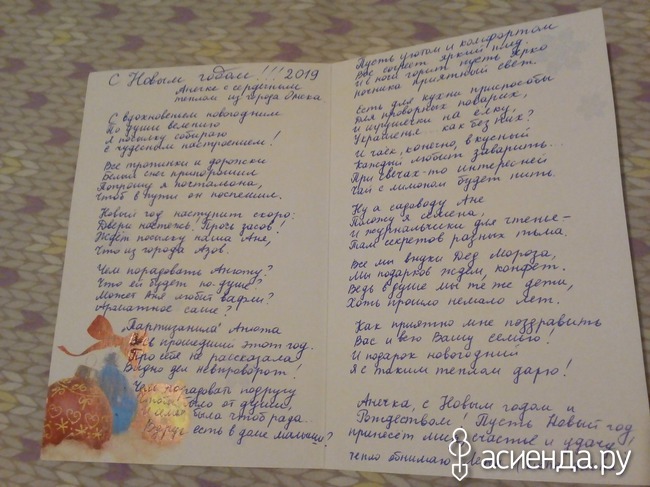 С Новым годом!!! 2019
Анечке с сердечным
теплом из города
С вдохновением новогодним
По душе велению
Я посылку собираю
С чудесном настроением!
Все тропинки и дорожки
Белый снег припорошил
Попрошу я почтальона,
Чтоб в пути он поспешил.
Новый год наступит скоро:
Двери настежь! Прочь засов!
Ждёт посылку наша Аня,
Что из города Азов.
Чем порадовать Анюту?
Что ей будет по душе?
Может Аня любит вафли?
Ароматное саше?
"Партизанила" Анюта
Весь прошедший этот год.
Про себя не рассказала
Видно дел невпроворот!
Чем порадовать подругу
Чтобы было от души,
И она была чтоб рада.
есть в доме малыши?
Пусть уютом и комфортом
Вас согреет яркий плед.
И в ночи горит пусть ярко
ночника приятный свет.
Есть для кухни приспособы
Для проворных поварих,
И игрушечки на ёлку,
Украшенья... как без них?
И чаёк, конечно, вкусный
Каждый любит заварить...
При свечах-то интересней
Чай с лимоном будет пить.
Ну а садоводу Ане
Положу я семена,
И журнальчики для чтенья -
Там секретов разных тьма.
Все мы внуки Дед Мороза,
Мы подарков ждём, конфет.
Ведь в душе мы те же дети,
Хоть прошло немало лет.
Как приятно мне поздравить
Вас и всю Вашу семью!
И подарок новогодний
Я с таким теплом дарю!
Анечка, с Новым годом и
Рождеством! Пусть Новый год
принесёт мир, счастье и удачу!
тепло обнимаю
асиенда.ру